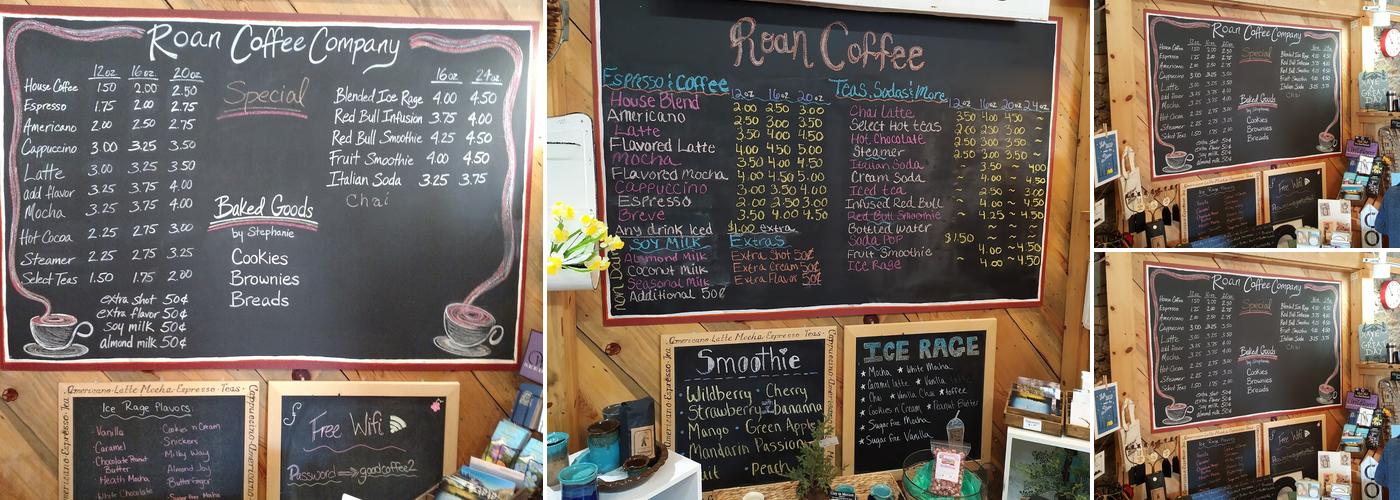 Roan Coffee Company
12oz 16oz 20oz
House Coffee 1.50 2.00 2.50
Espresso 1.75 2.00 2.75
Americano 2.00 2.50 2.75
Cappuccino 3.00 3.25 3.50
Latte 3.00 3.25 3.50
add flavor
Mocha 3.25 3.75 4.00
3.25 3.75 4.00
Hot Cocoa 2.25 2.75 3.00
Steamer 2.25 2.75 3.25
Select Teas 1.50 1.75 2.00
extra shot 50¢
extra flavor 50¢
soy milk 50¢
almond milk 50¢
Special
Baked Goods
by Stephanie
Cookies
Brownies
Breads
16oz 24oz
Blended Ice Rage 4.00 4.50
Red Bull Infusion 3.75 4.00
Red Bull Smoothie 4.25 4.50
Fruit Smoothie 4.00 4.50
Italian Soda 3.25 3.75
Chai
Americano-Latte Mocha-Espresso-Teas-
Ice Rage Flavors:
Vanilla
Caramel
Chocolate Peanut
Butter
Heath Mocha
White Chocolate
Cookies n Cream
Snickers
Milky Way
Almond Joy
Butterfinger
Sugar Free Mocha
Free Wifi
Password goodcoffee2
Roan Coffee
Espresso & Coffee
12oz 16oz 20oz
House Blend 2.00 2.50 3.00
Americano 2.50 3.00 3.50
Latte 3.50 4.00 4.50
Flavored Latte 4.00 4.50 5.00
Mocha 3.50 4.00 4.50
Flavored Mocha 4.00 4.50 5.00
Cappuccino 3.00 3.50 4.00
Espresso 2.00 2.50 3.00
Breve 3.50 4.00 4.50
Any drink Iced $1.00 extra
Soy Milk
Almond Milk
Coconut Milk
Seasonal Milk
Additional 50¢
Extras
Extra Shot 50¢
Extra Cream 50¢
Extra Flavor 50¢
Teas, Sodas & More
12oz 16oz 20oz 24oz
Chai Latte 3.50 4.00 4.50 ~
Select Hot teas 2.00 2.50 3.00 ~
Hot Chocolate 2.50 3.00 3.50 ~
Steamer
Italian Soda
Cream Soda
Iced tea
Infused Red Bull
Red Bull Smoothie ~ 4.25 ~ 4.50
Bottled Water
Soda Pop $1.50
Fruit Smoothie ~ 4.00 ~ 4.50
Ice Rage ~ 4.00 ~ 4.50
Americano-Latte Mocha-Espresso-Teas-
Smoothie
Wildberry · Cherry
Strawberry bananna
Mango · Green Apple
Mandarin Passion
· Peach
ICE RAGE
Mocha White Mocha
Caramel Latte Vanilla
Chai Vanilla Chai toffee
Cookies n Cream Peanut Butter
Sugar Free Mocha
Sugar Free Vanilla
Roan Coffee Company
Special
Baked Goods
by Stephanie
Cookies
Brownies
Breads
Free Wifi
Roan Coffee Company
Special
Baked Goods
by Stephanie
Cookies
Brownies
Breads
Free Wifi